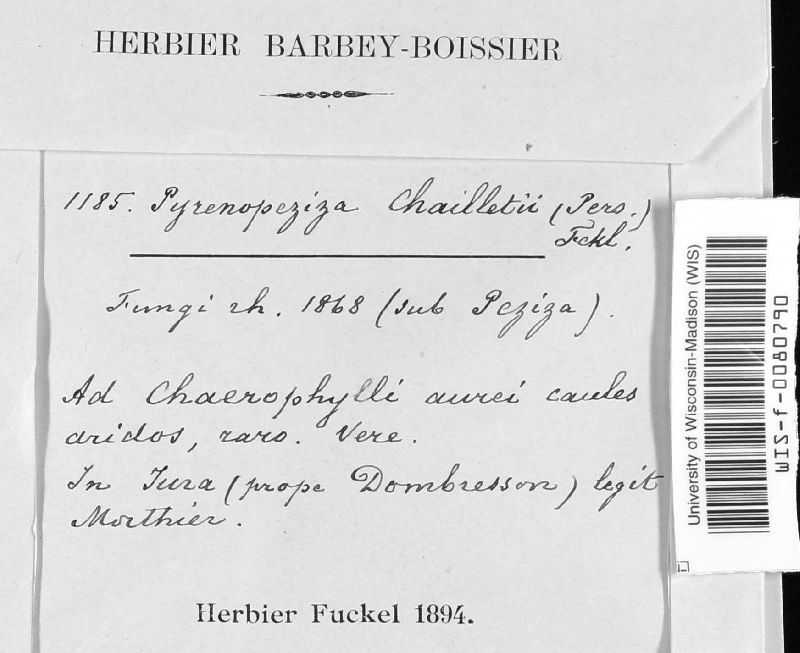 HERBIER BARBEY-BOISSIER
1185. Pyrenopeziza Chailletii (Pers.)
Fckl.
Fungi rh. 1868 (sub Peziza).
Ad Chaerophylli aurei caules
aridos, raro. Vere.
In Jura (prope Dombresson) legit
Morthier.
Herbier Fuckel 1894.
University of Wisconsin-Madison (WIS)
WIS-f-0080790